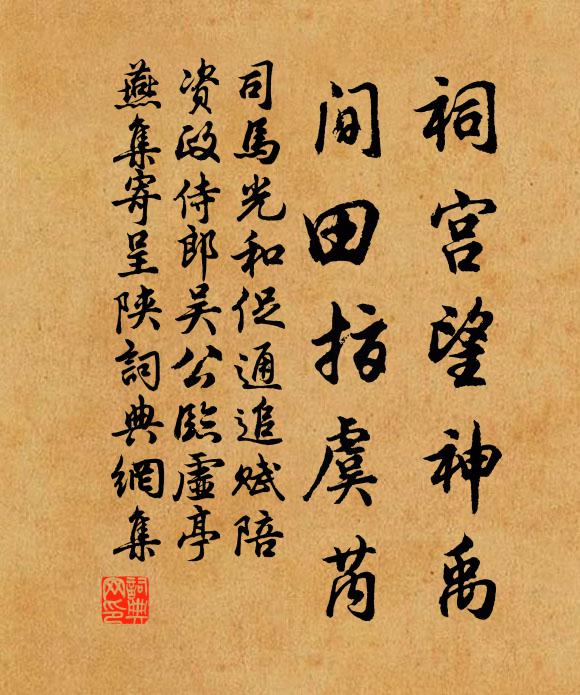 祠宫望神禹
间田指虞芮
司馬光和促通追赋陪
资政侍郎吴公臨虚亭
燕集寄呈陕詞典網集
詞典网印